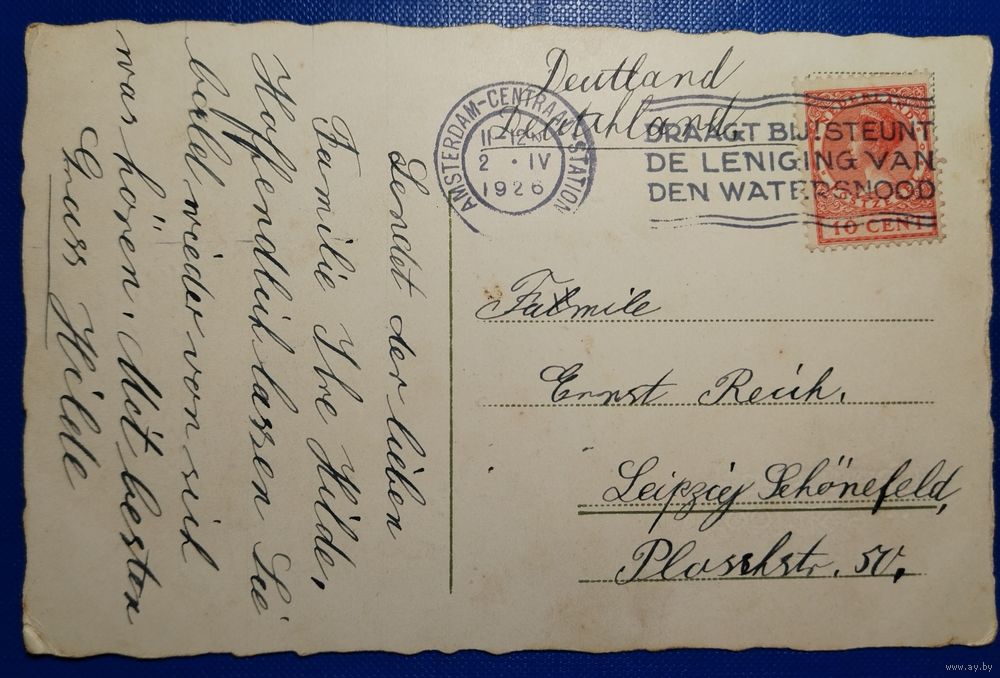 Sendet der lieben
Familie Ihre Hilde,
Hoffendlich lassen Sie
bald wieder von sich
was hören. Mit besten
Gruss Hilde
Deutland
Deutschland.
AMSTERDAM-CENTRAAL STATION
2 · IV
1926
DRAAGT BIJ! STEUNT
DE LENIGING VAN
DEN WATERSNOOD
NEDERLAND
POSTZEGEL
10 CENT
Familie
Ernst Reich.
Leipzig Schönefeld,
Plosshstr. 50.
www.ay.by